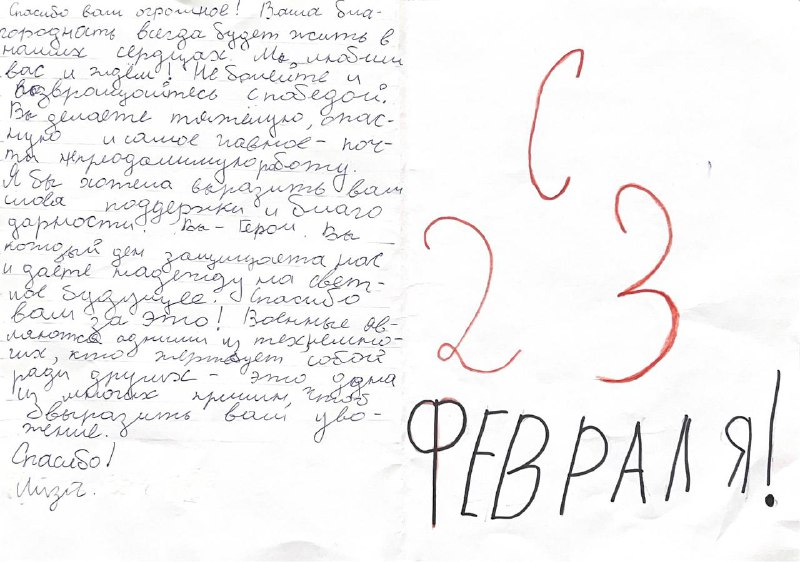 Спасибо вам огромное! Ваша бла-
городнасть всегда будет жить в
наших сердцах. Мы любим
вас и ждём! Не болейте и
возвращайтесь с победой.
Вы делаете тяжёлую, опас-
ную и самое главное - поч-
ти непреодалимую работу.
Я бы хотела выразить вам
слова поддержки и благо
дарности. Вы - Герои. Вы
каждый ден защищаете нас
и даёте надежду на свет-
лое будущее. Спасибо
вам за это! Военные яв-
ляются одними из тех немно-
гих, кто жертвует собой
ради других - это одна
из многих причин, чтоб
выразить вам ува-
жение.
Спасибо!
С
23
ФЕВРАЛЯ!